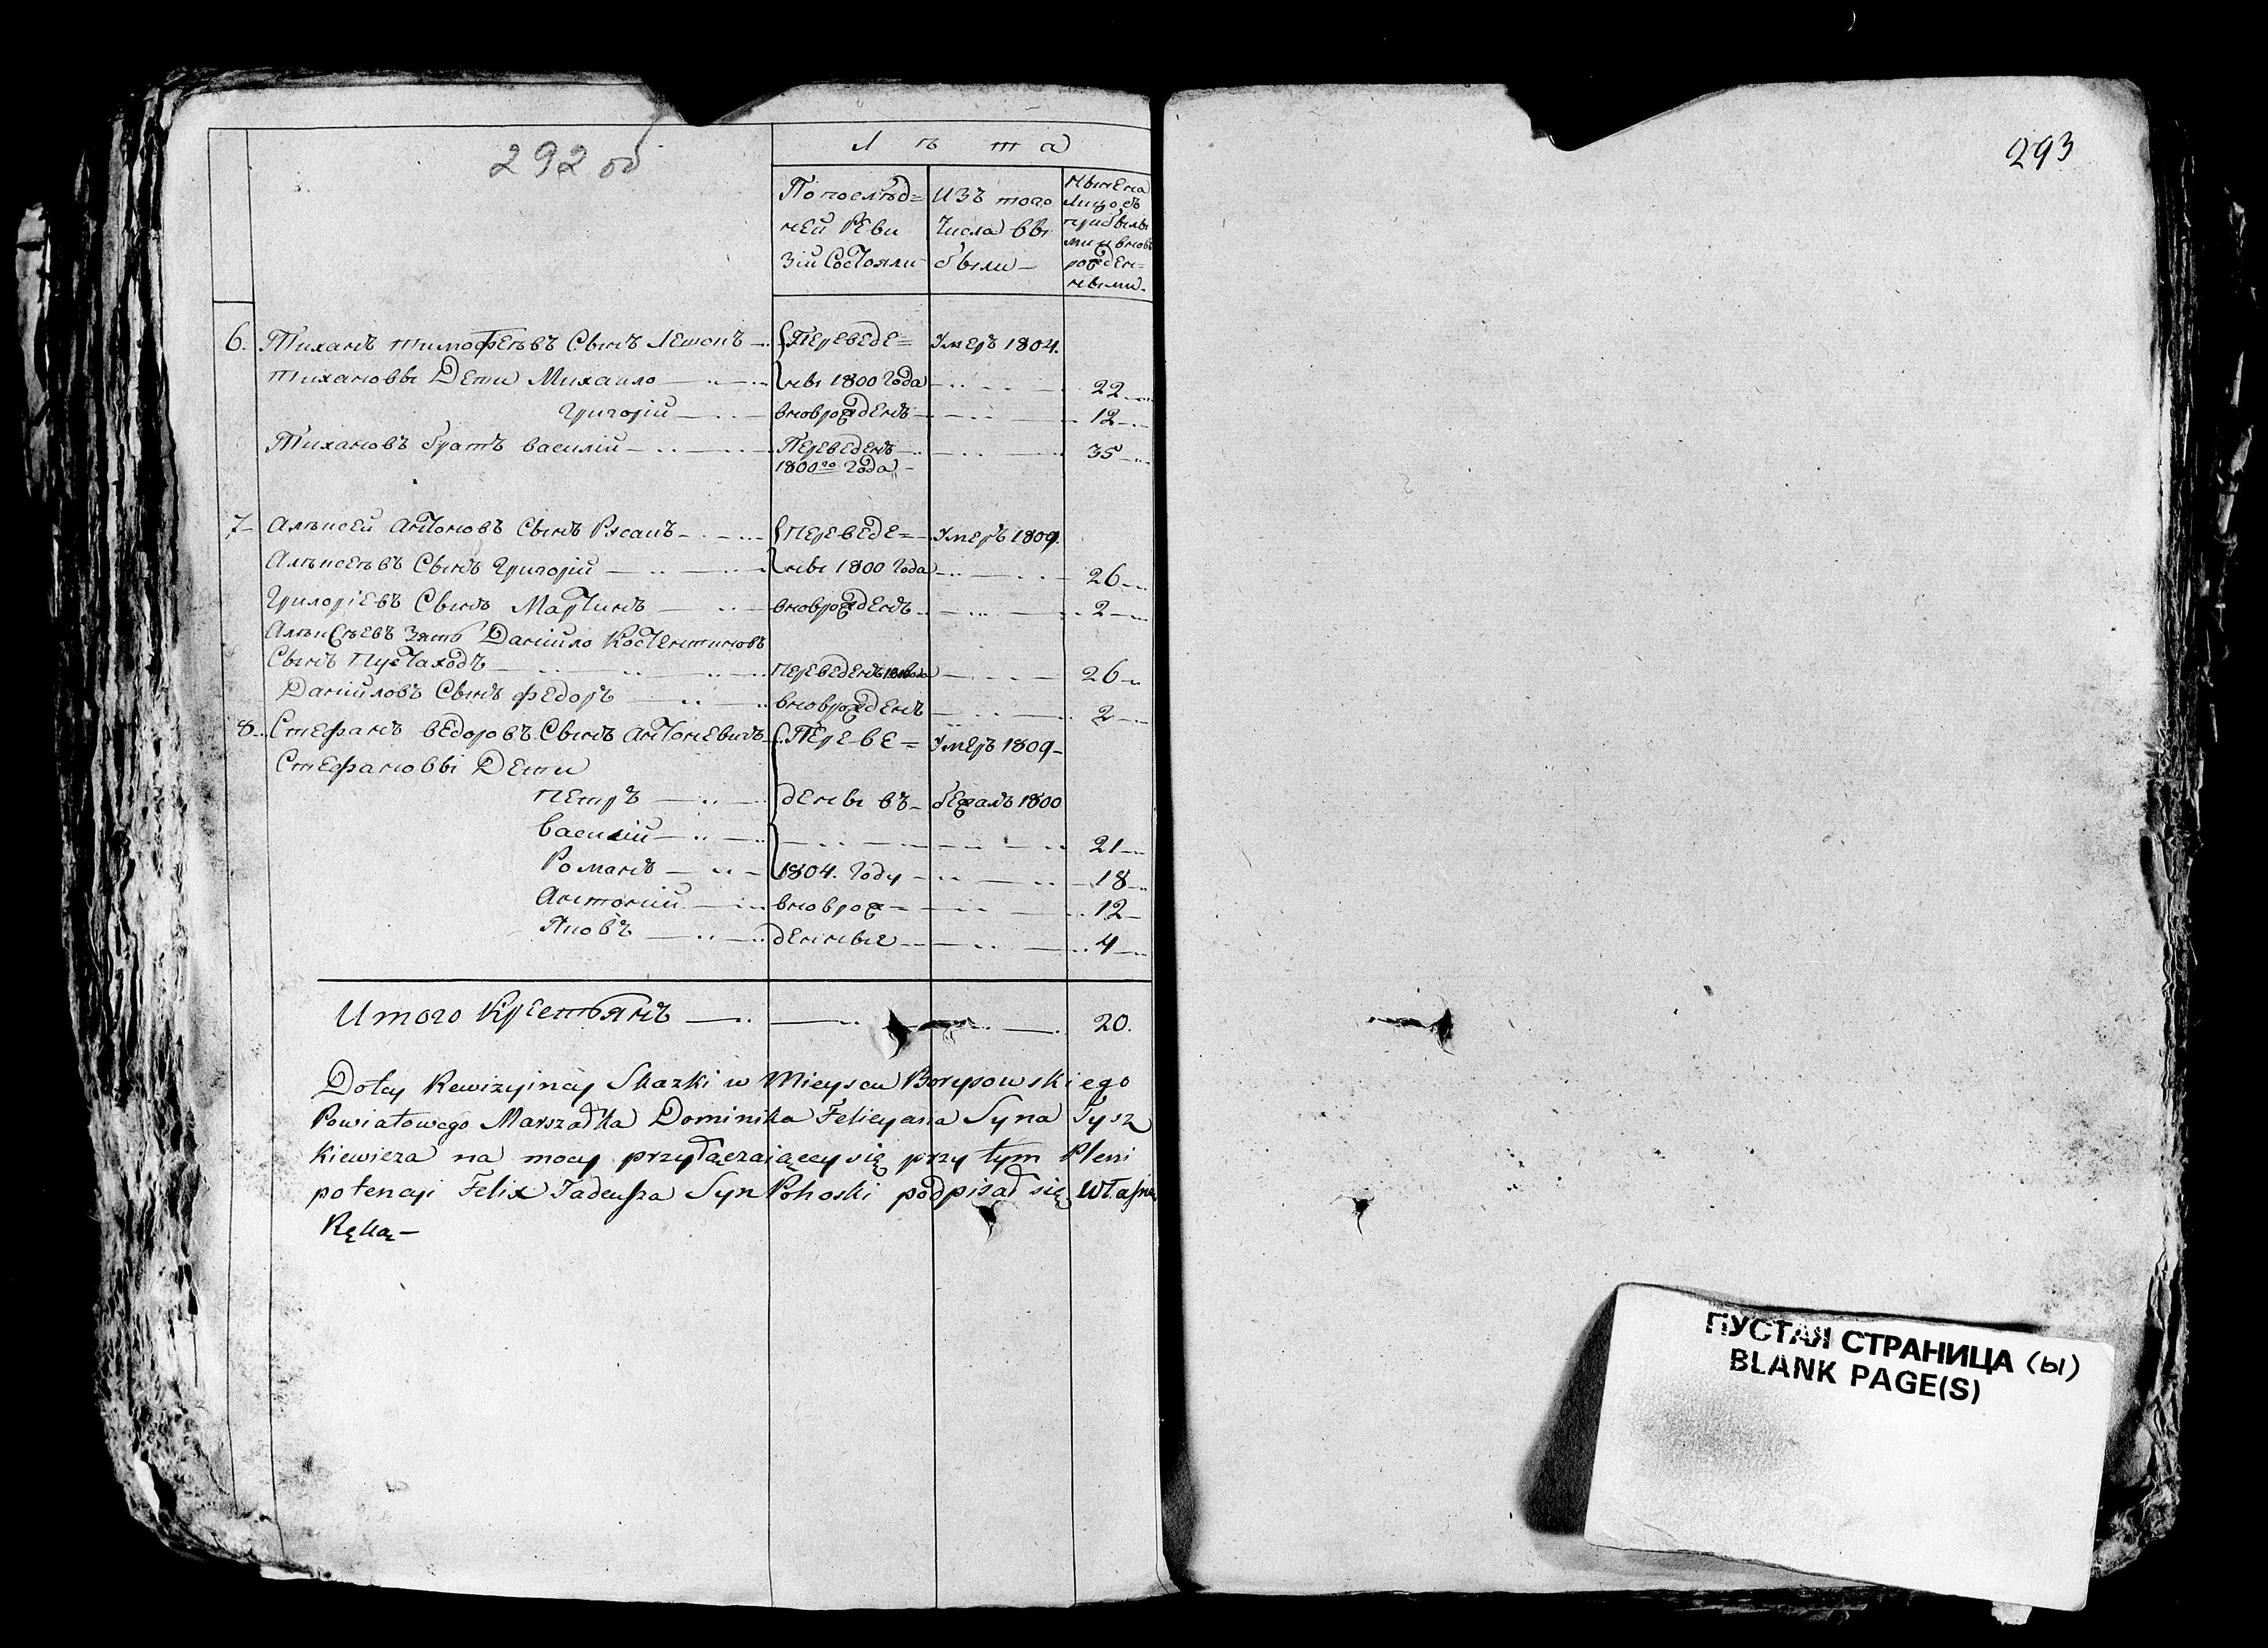 292 об
Лѣта
По послѣд=
ней Реви
зіи Состояли
Изъ того
Числа вы
были —
Нынѣ на
Лицо съ
прибылы
ми и вновь
рожден=
ными.
6. Тиханъ тимофеевъ Сынъ Летокъ — {Переведе= Умеръ 1804.
тихановы Дети Михаило — ны 1800 Года — 22
Григорій — вноврожденъ — 12
Тихановъ братъ василій — Переведенъ — 35
1800го Года —
7 — Алѣксей Антоновъ Сынъ — {переведе= Умеръ 1809.
Алѣксеевъ Сынъ Григорій — ны 1800 Года — 26
Григоріевъ Сынъ Мартинъ — вноврожденъ — 2
Алѣксѣевъ Зять Даніило Костентиновъ
Сынъ Пустаходъ — переведенъ — 26
Даніиловъ Сынъ федоръ — вноврожденъ — 2
8. Стефанъ ѳедоровъ Сынъ Антоневичъ {Переве= Умеръ 1809 —
Стефановы Дети
Петръ — дены въ — бежалъ 1800
василій — 21
Романъ — 1804. Году — 18
Антоній — вноврож= — 12
Яковъ — денные — 4
Итого Крестьянъ — 20.
Do tey Rewizyiney Skazki w Mieyscu Borysowskiego
Powiatowego Marszałka Dominika Felicyana Syna Tysz
kiewicza na mocy przyłączaiącey się przy tym Pleni
potencyi Felix Tadeusza Syn Pohoski podpisał się Własną
Ręką —
293
ПУСТАЯ СТРАНИЦА (Ы)
BLANK PAGE(S)